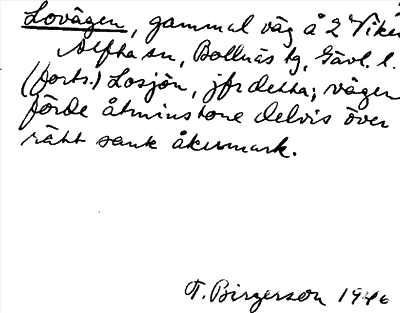 Lovägen, gammal väg å 2 Viken
Alfta sn, Bollnäs tg, Gävl. l.
(forts.) Losjön, jfr detta; vägen
förde åtminstone delvis över
rätt sank åkermark.
T. Birgerson 1946